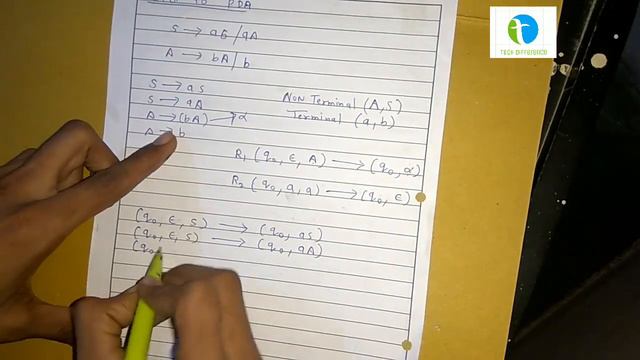 TO PDA
S → aS/aA
A → bA/b
S → aS
S → aA
A → (bA) → α
A → b
Non Terminal (A,S)
Terminal (a,b)
R₁ (q₀, ε, A) → (q₀, α)
R₂ (q₀, a, a) → (q₀, ε)
(q₀, ε, S) → (q₀, aS)
(q₀, ε, S) → (q₀, aA)
(q₀
TECH DIFFERENCE